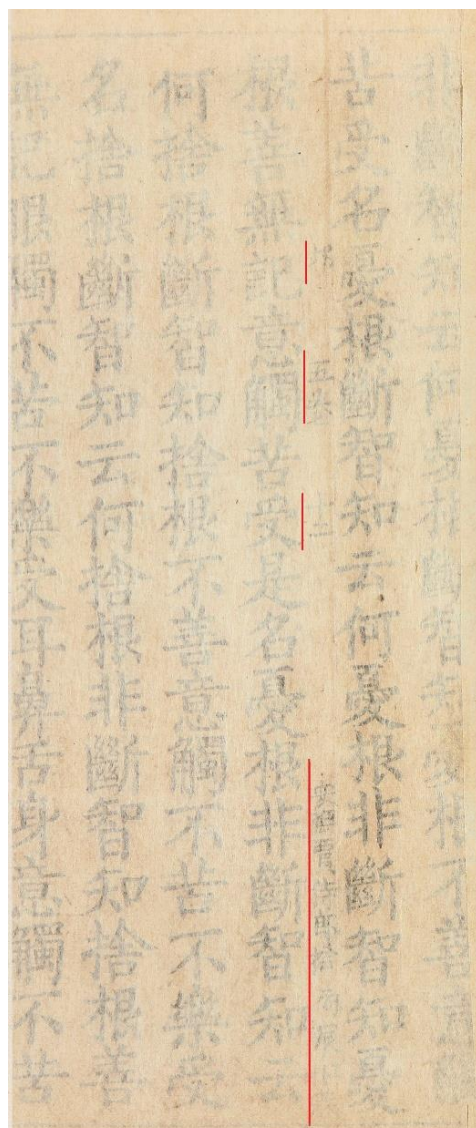 非斷智知云何憂根斷智知憂根不善意觸
苦受名憂根斷智知云何憂根非斷智知憂
五卷 十二
根善無記意觸苦受是名憂根非斷智知云
何捨根斷智知捨根不善意觸不苦不樂受
名捨根斷智知云何捨根非斷智知捨根善
無記眼觸不苦不樂受耳鼻舌身意觸不苦